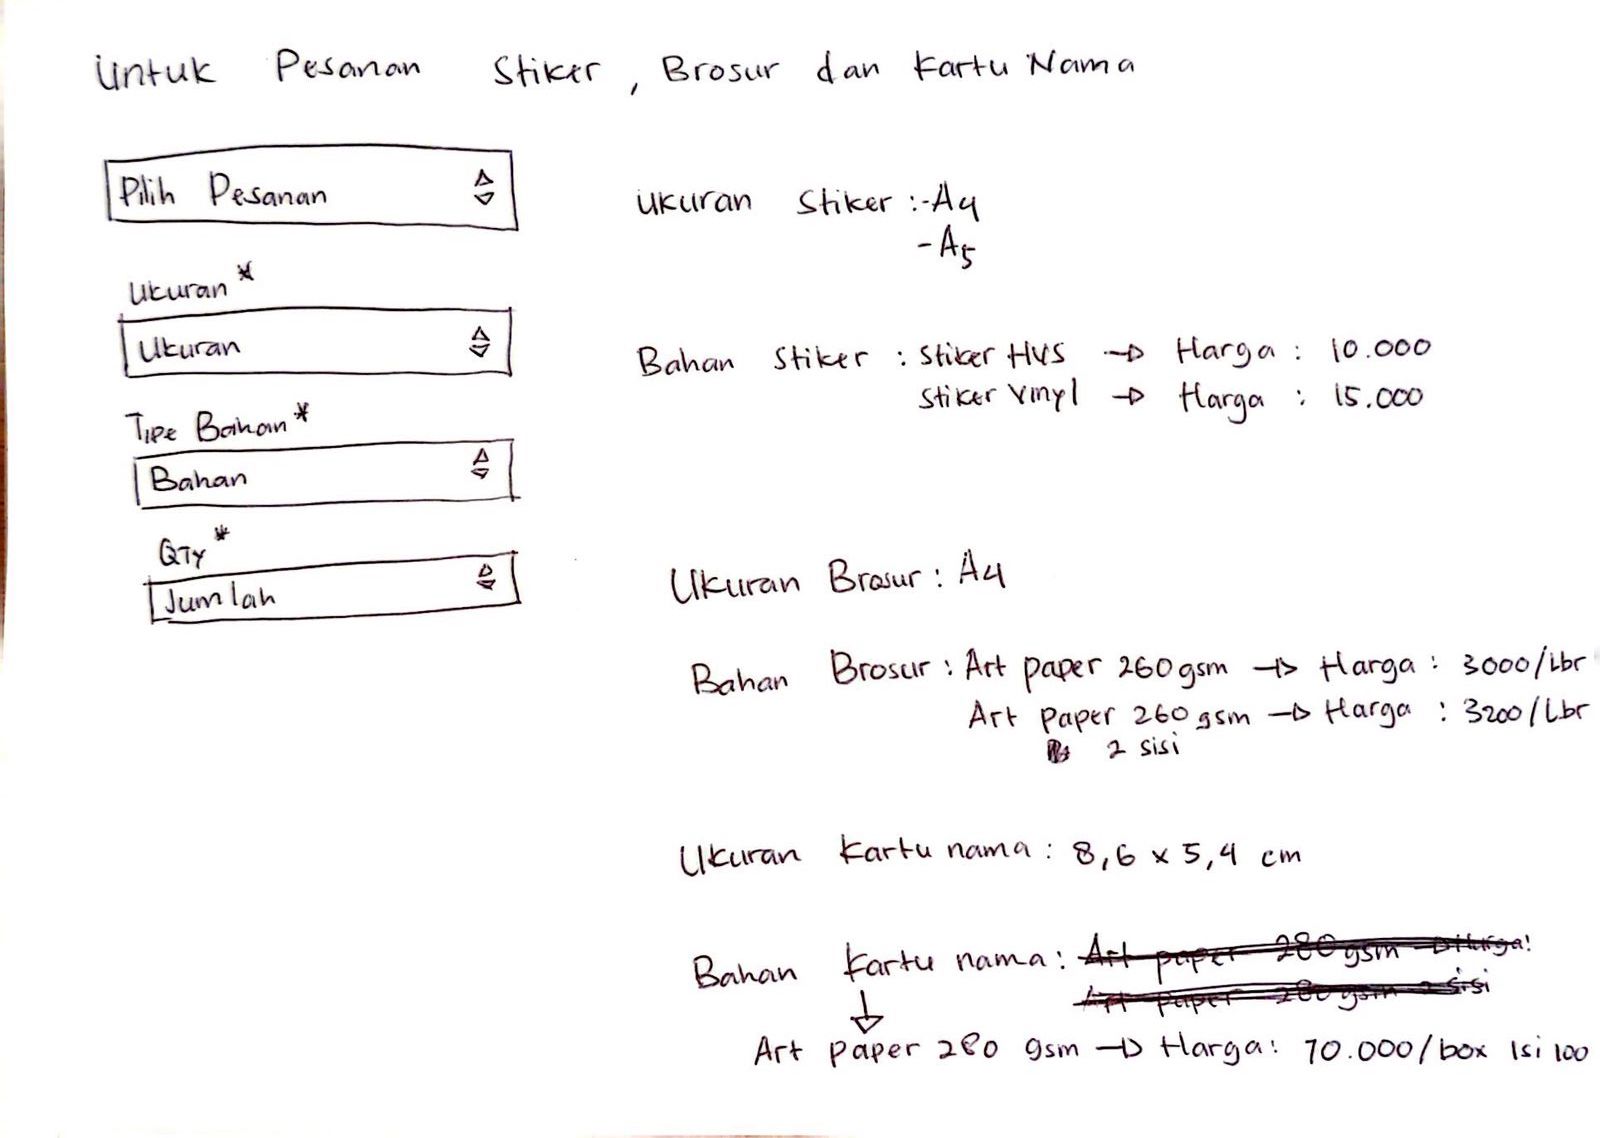 Untuk Pesanan Stiker, Brosur dan Kartu Nama
Pilih Pesanan
Ukuran*
Ukuran
Tipe Bahan*
Bahan
QTY*
Jumlah
Ukuran Stiker : - A4
- A5
Bahan Stiker : Stiker HVS → Harga : 10.000
Stiker Vinyl → Harga : 15.000
Ukuran Brosur : A4
Bahan Brosur : Art paper 260 gsm → Harga : 3000/Lbr
Art paper 260 gsm → Harga : 3200/Lbr
2 sisi
Ukuran Kartu nama : 8,6 x 5,4 cm
Bahan Kartu nama : Art paper 280 gsm → Harga:
Art paper 280 gsm 2 sisi
Art paper 280 gsm → Harga : 70.000/box Isi 100